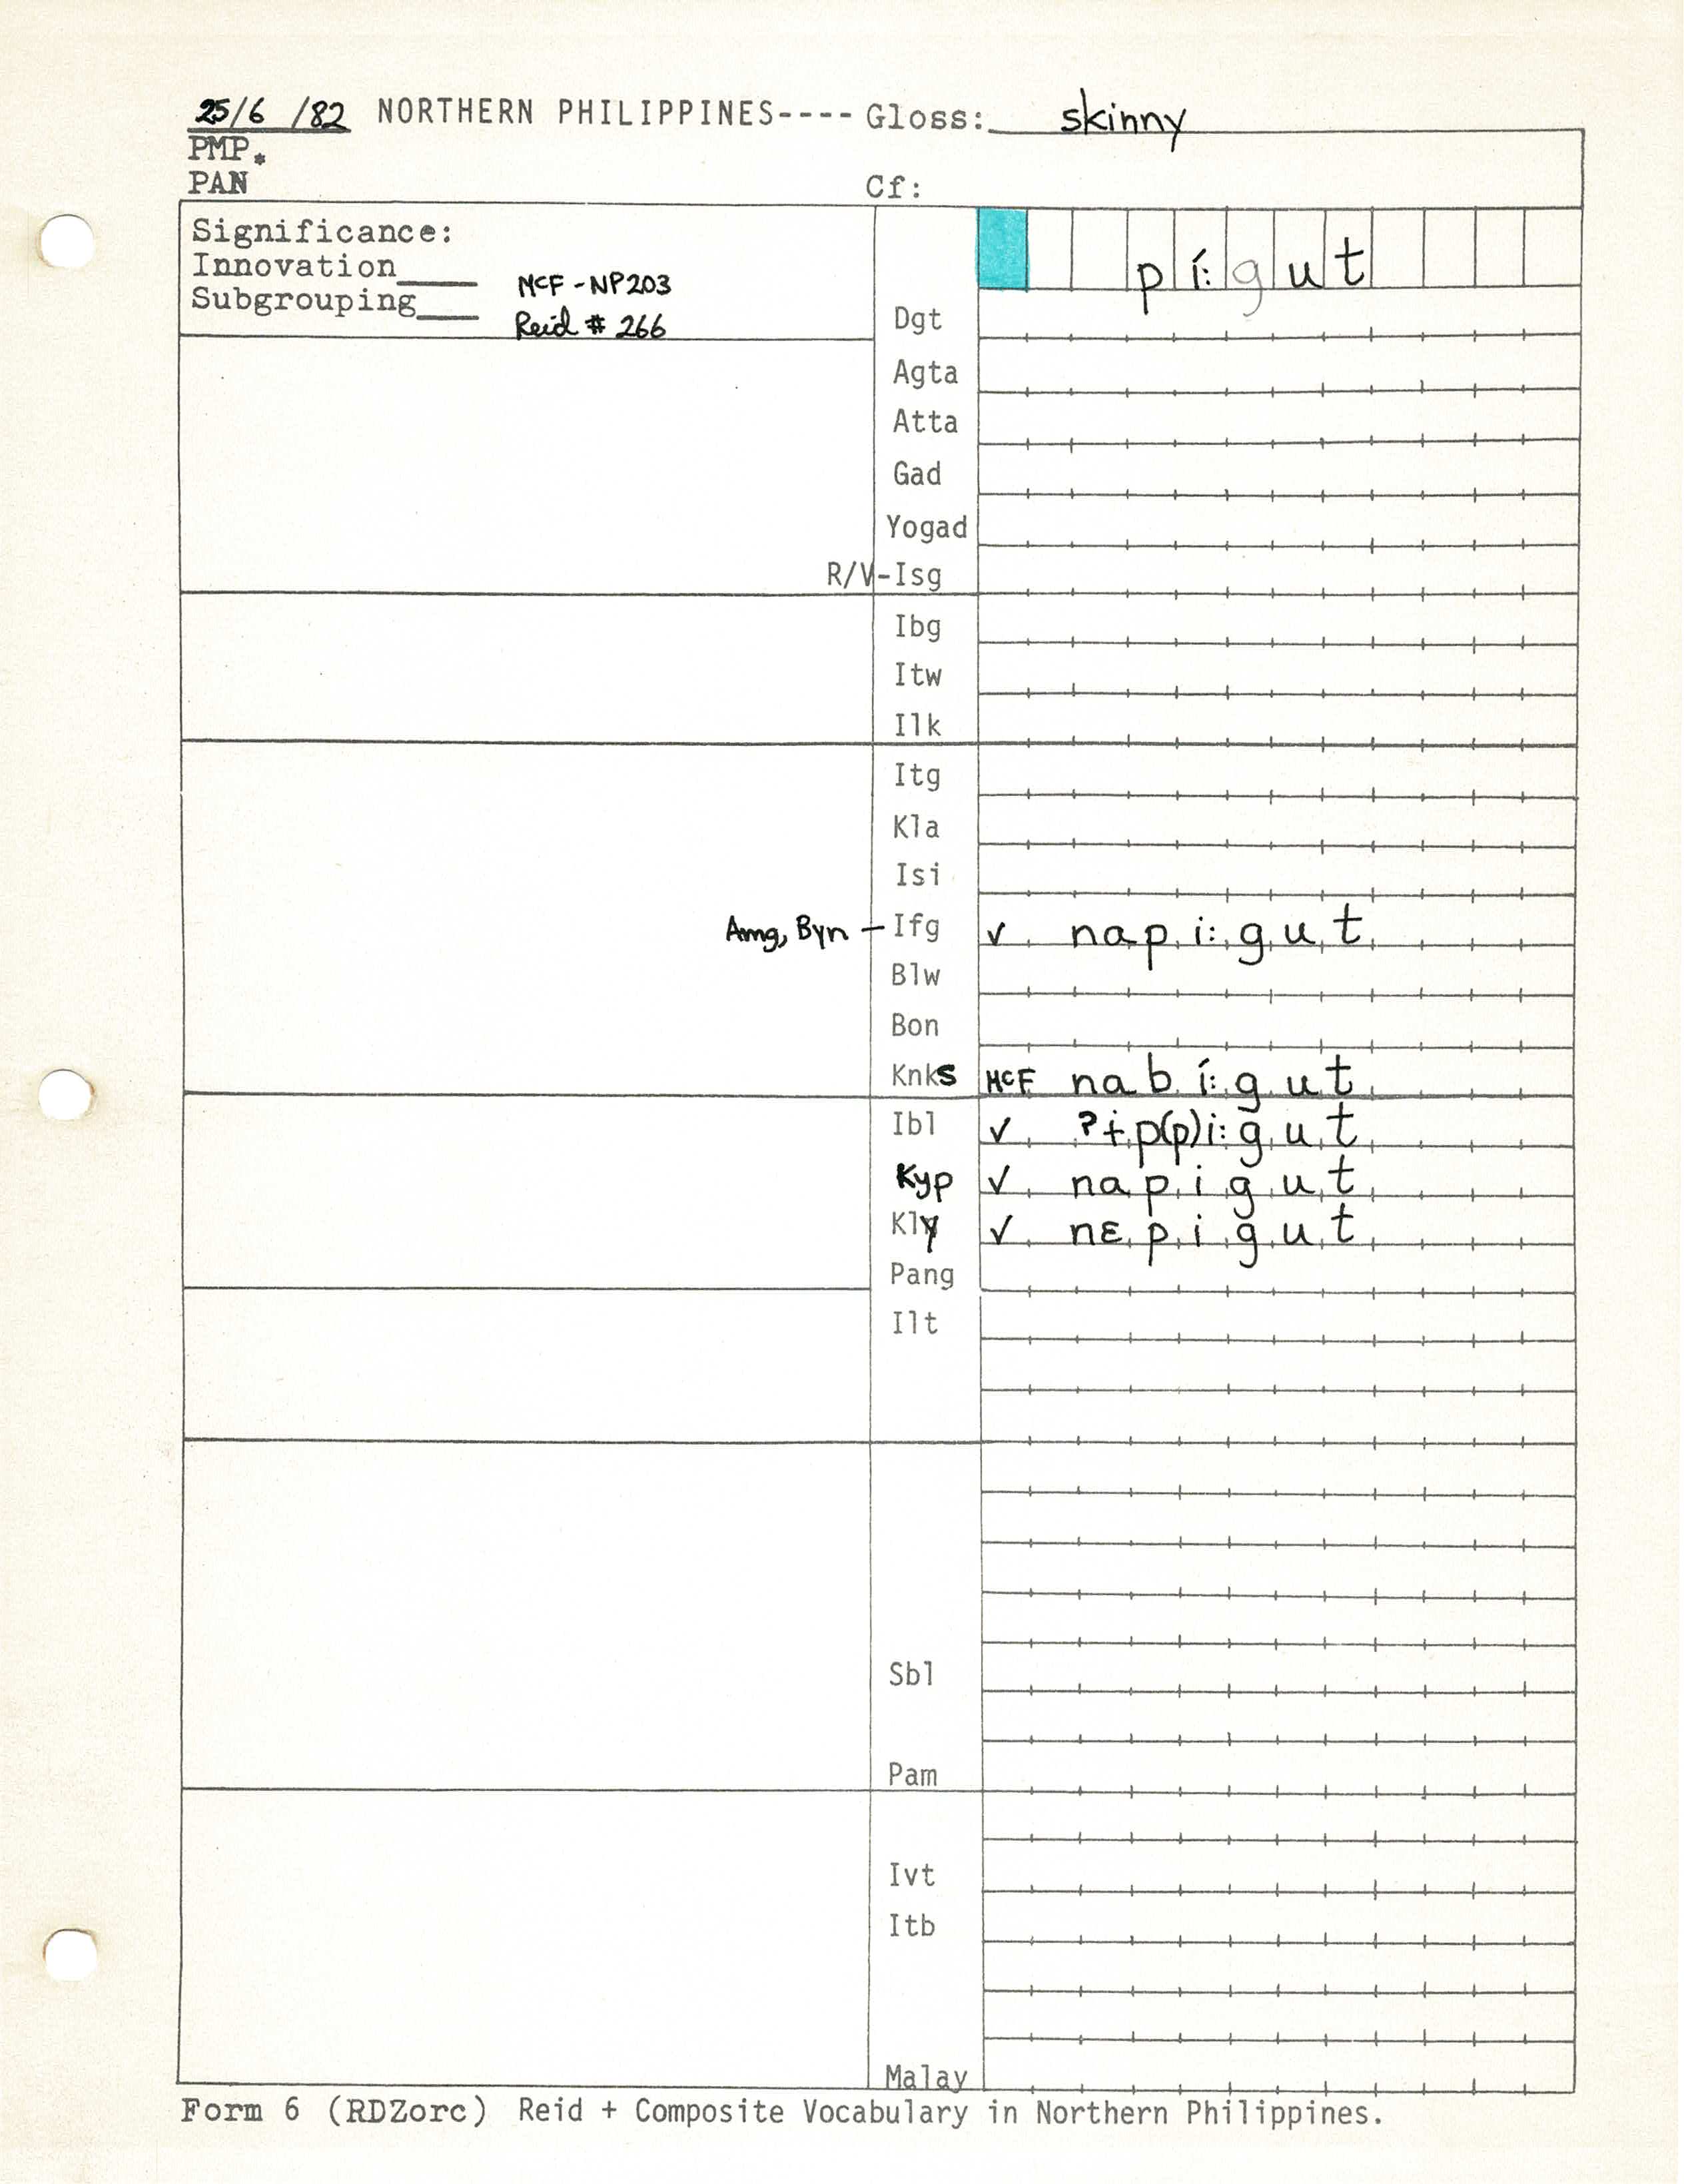 25/6 /82 NORTHERN PHILIPPINES---- Gloss: skinny
PMP*
PAN Cf:
Significance:
Innovation____ McF - NP203
Subgrouping____ Reid # 266
pí:gut
Dgt
Agta
Atta
Gad
Yogad
R/V-Isg
Ibg
Itw
Ilk
Itg
Kla
Isi
Amg, Byn - Ifg ✓ napi:gut
Blw
Bon
Knks McF nabí:gut
Ibl ✓ ʔɨp(p)i:gut
Kyp ✓ napigut
Kly ✓ nɛpigut
Pang
Ilt
Sbl
Pam
Ivt
Itb
Malay
Form 6 (RDZorc) Reid + Composite Vocabulary in Northern Philippines.